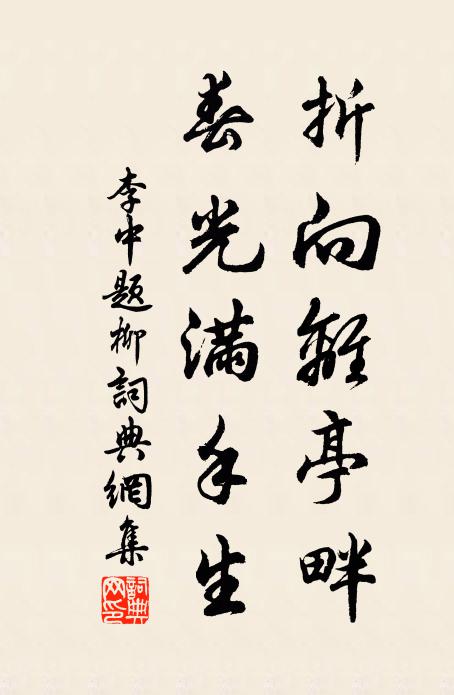 折向離亭畔
春光滿手生
李中題柳詞典網集
詞典網印